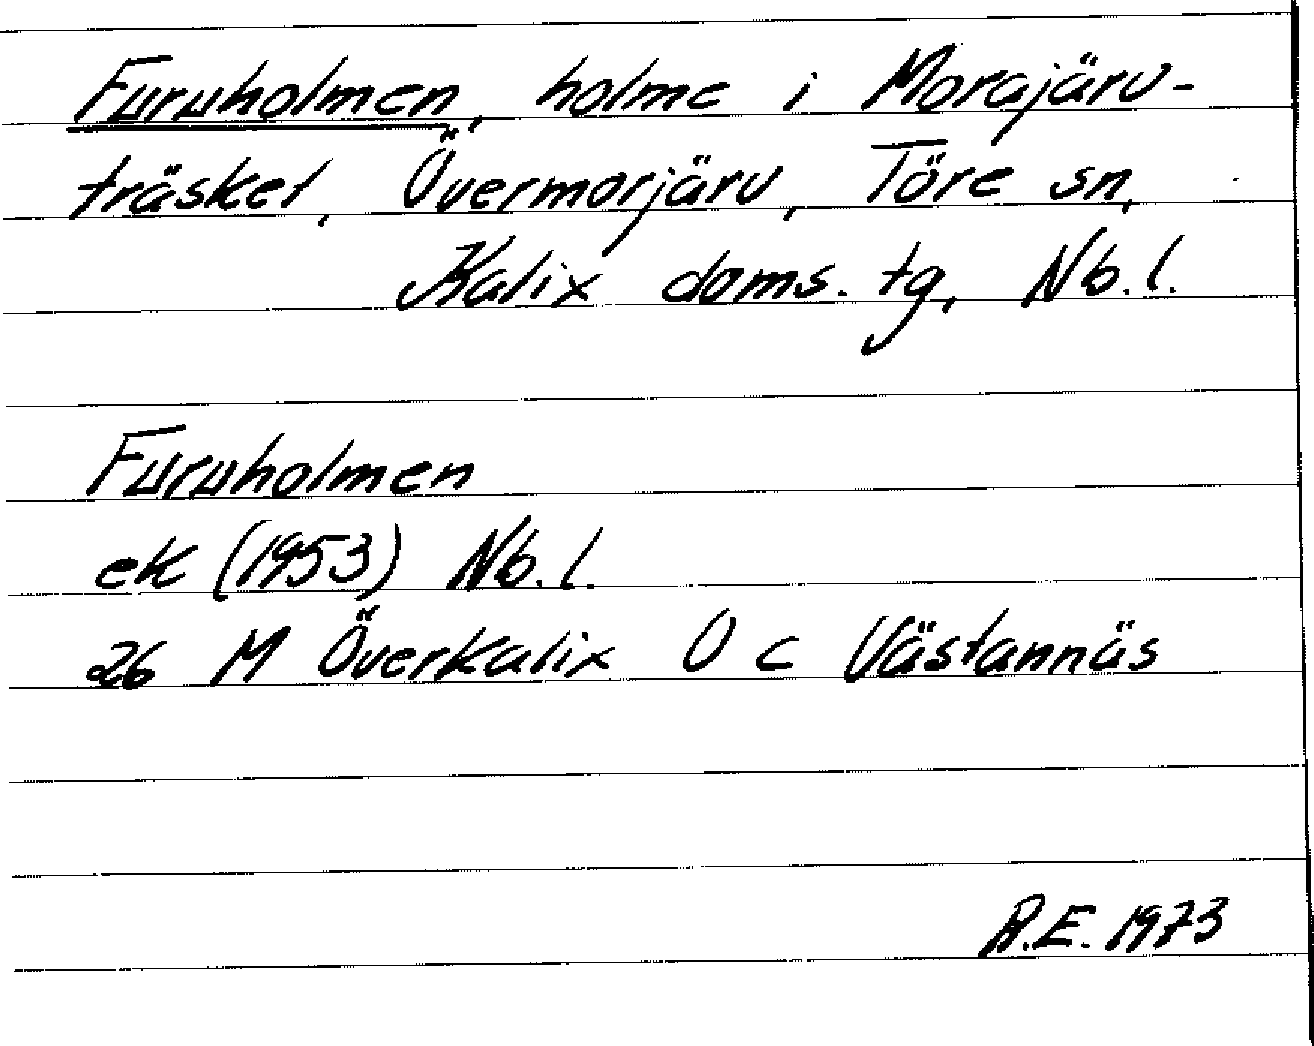 Furuholmen, holme i Morajärv-
träsket, Övermorjärv, Töre sn,
Kalix doms. tg, Nb. l.
Furuholmen
ek (1953) Nb. l.
26 M Överkalix O c Västannäs
R.E. 1973